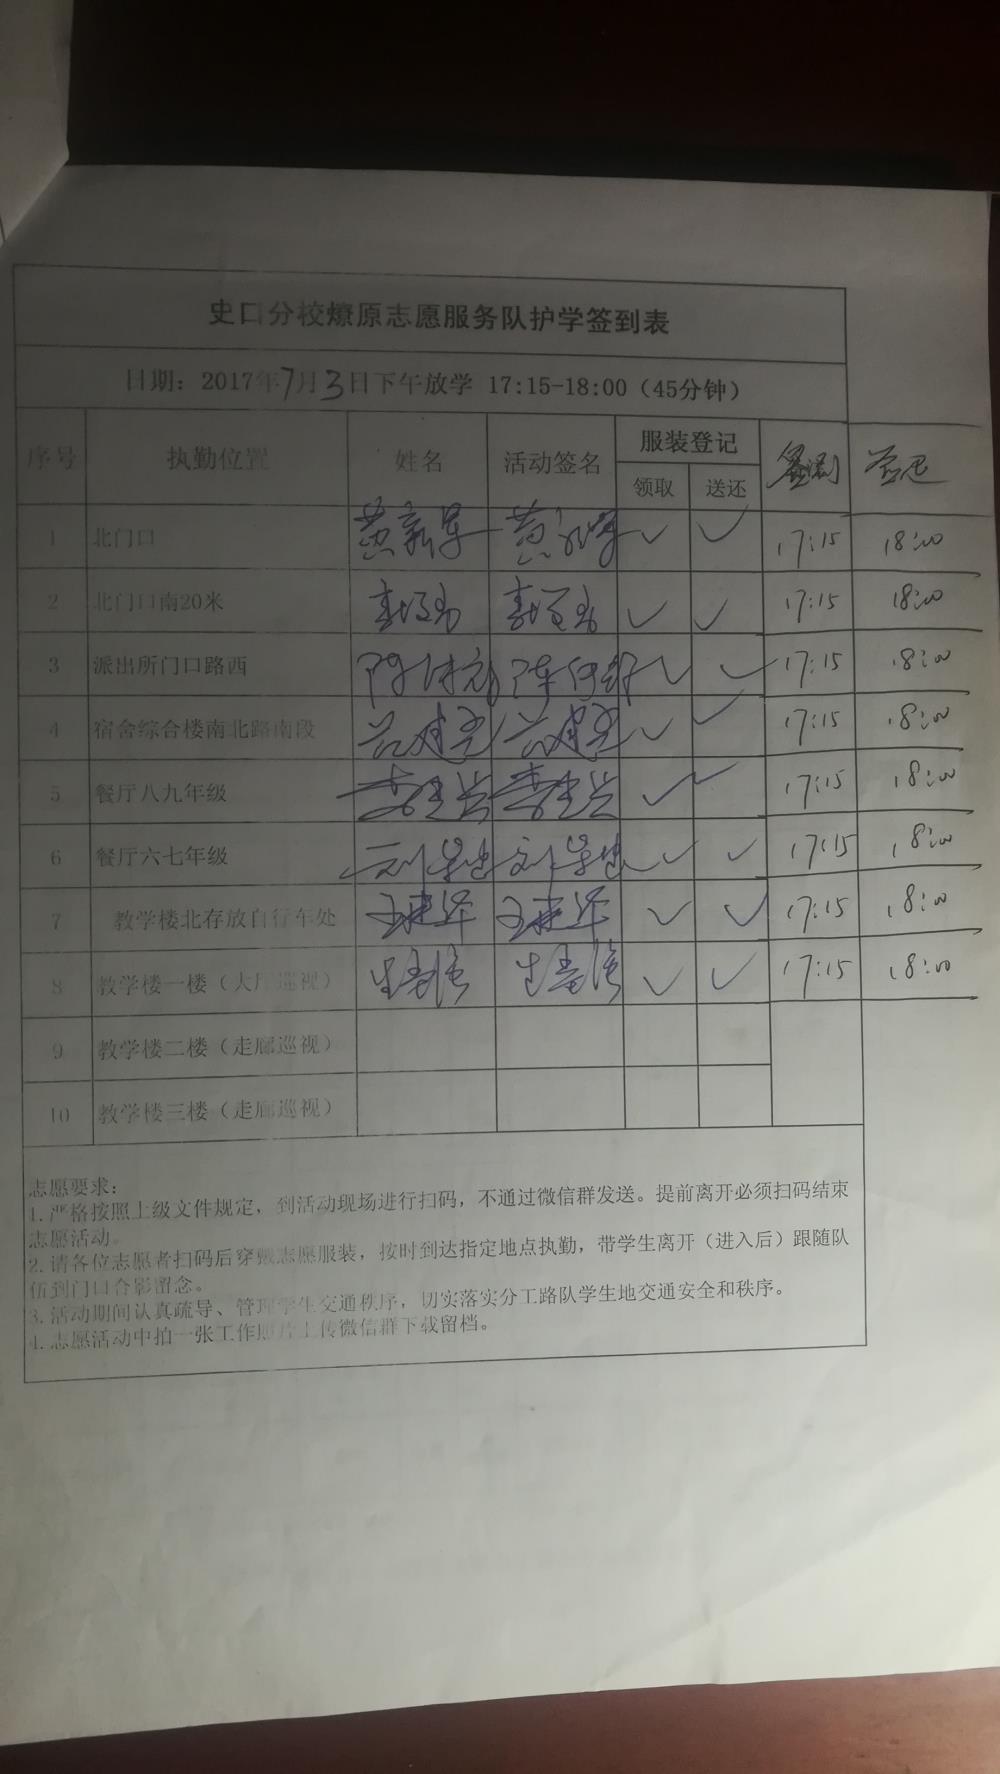 史口分校燎原志愿服务队护学签到表
日期：2017年7月3日下午放学 17:15-18:00（45分钟）
序号 执勤位置 姓名 活动签名 服装登记 签到 签退
领取 送还
1 北门口 ✓ ✓ 17:15 18:00
2 北门口南20米 ✓ ✓ 17:15 18:00
3 派出所门口路西 ✓ ✓ 17:15 18:00
4 宿舍综合楼南北路南段 ✓ ✓ 17:15 18:00
5 餐厅八九年级 ✓ ✓ 17:15 18:00
6 餐厅六七年级 ✓ ✓ 17:15 18:00
7 教学楼北存放自行车处 王建华 王建华 ✓ ✓ 17:15 18:00
8 教学楼一楼（大厅巡视） ✓ ✓ 17:15 18:00
9 教学楼二楼（走廊巡视）
10 教学楼三楼（走廊巡视）
志愿要求：
1.严格按照上级文件规定，到活动现场进行扫码，不通过微信群发送。提前离开必须扫码结束
志愿活动。
2.请各位志愿者扫码后穿戴志愿服装，按时到达指定地点执勤，带学生离开（进入后）跟随队
伍到门口合影留念。
3.活动期间认真疏导、管理学生交通秩序，切实落实分工路队学生地交通安全和秩序。
4.志愿活动中拍一张工作照片上传微信群下载留档。